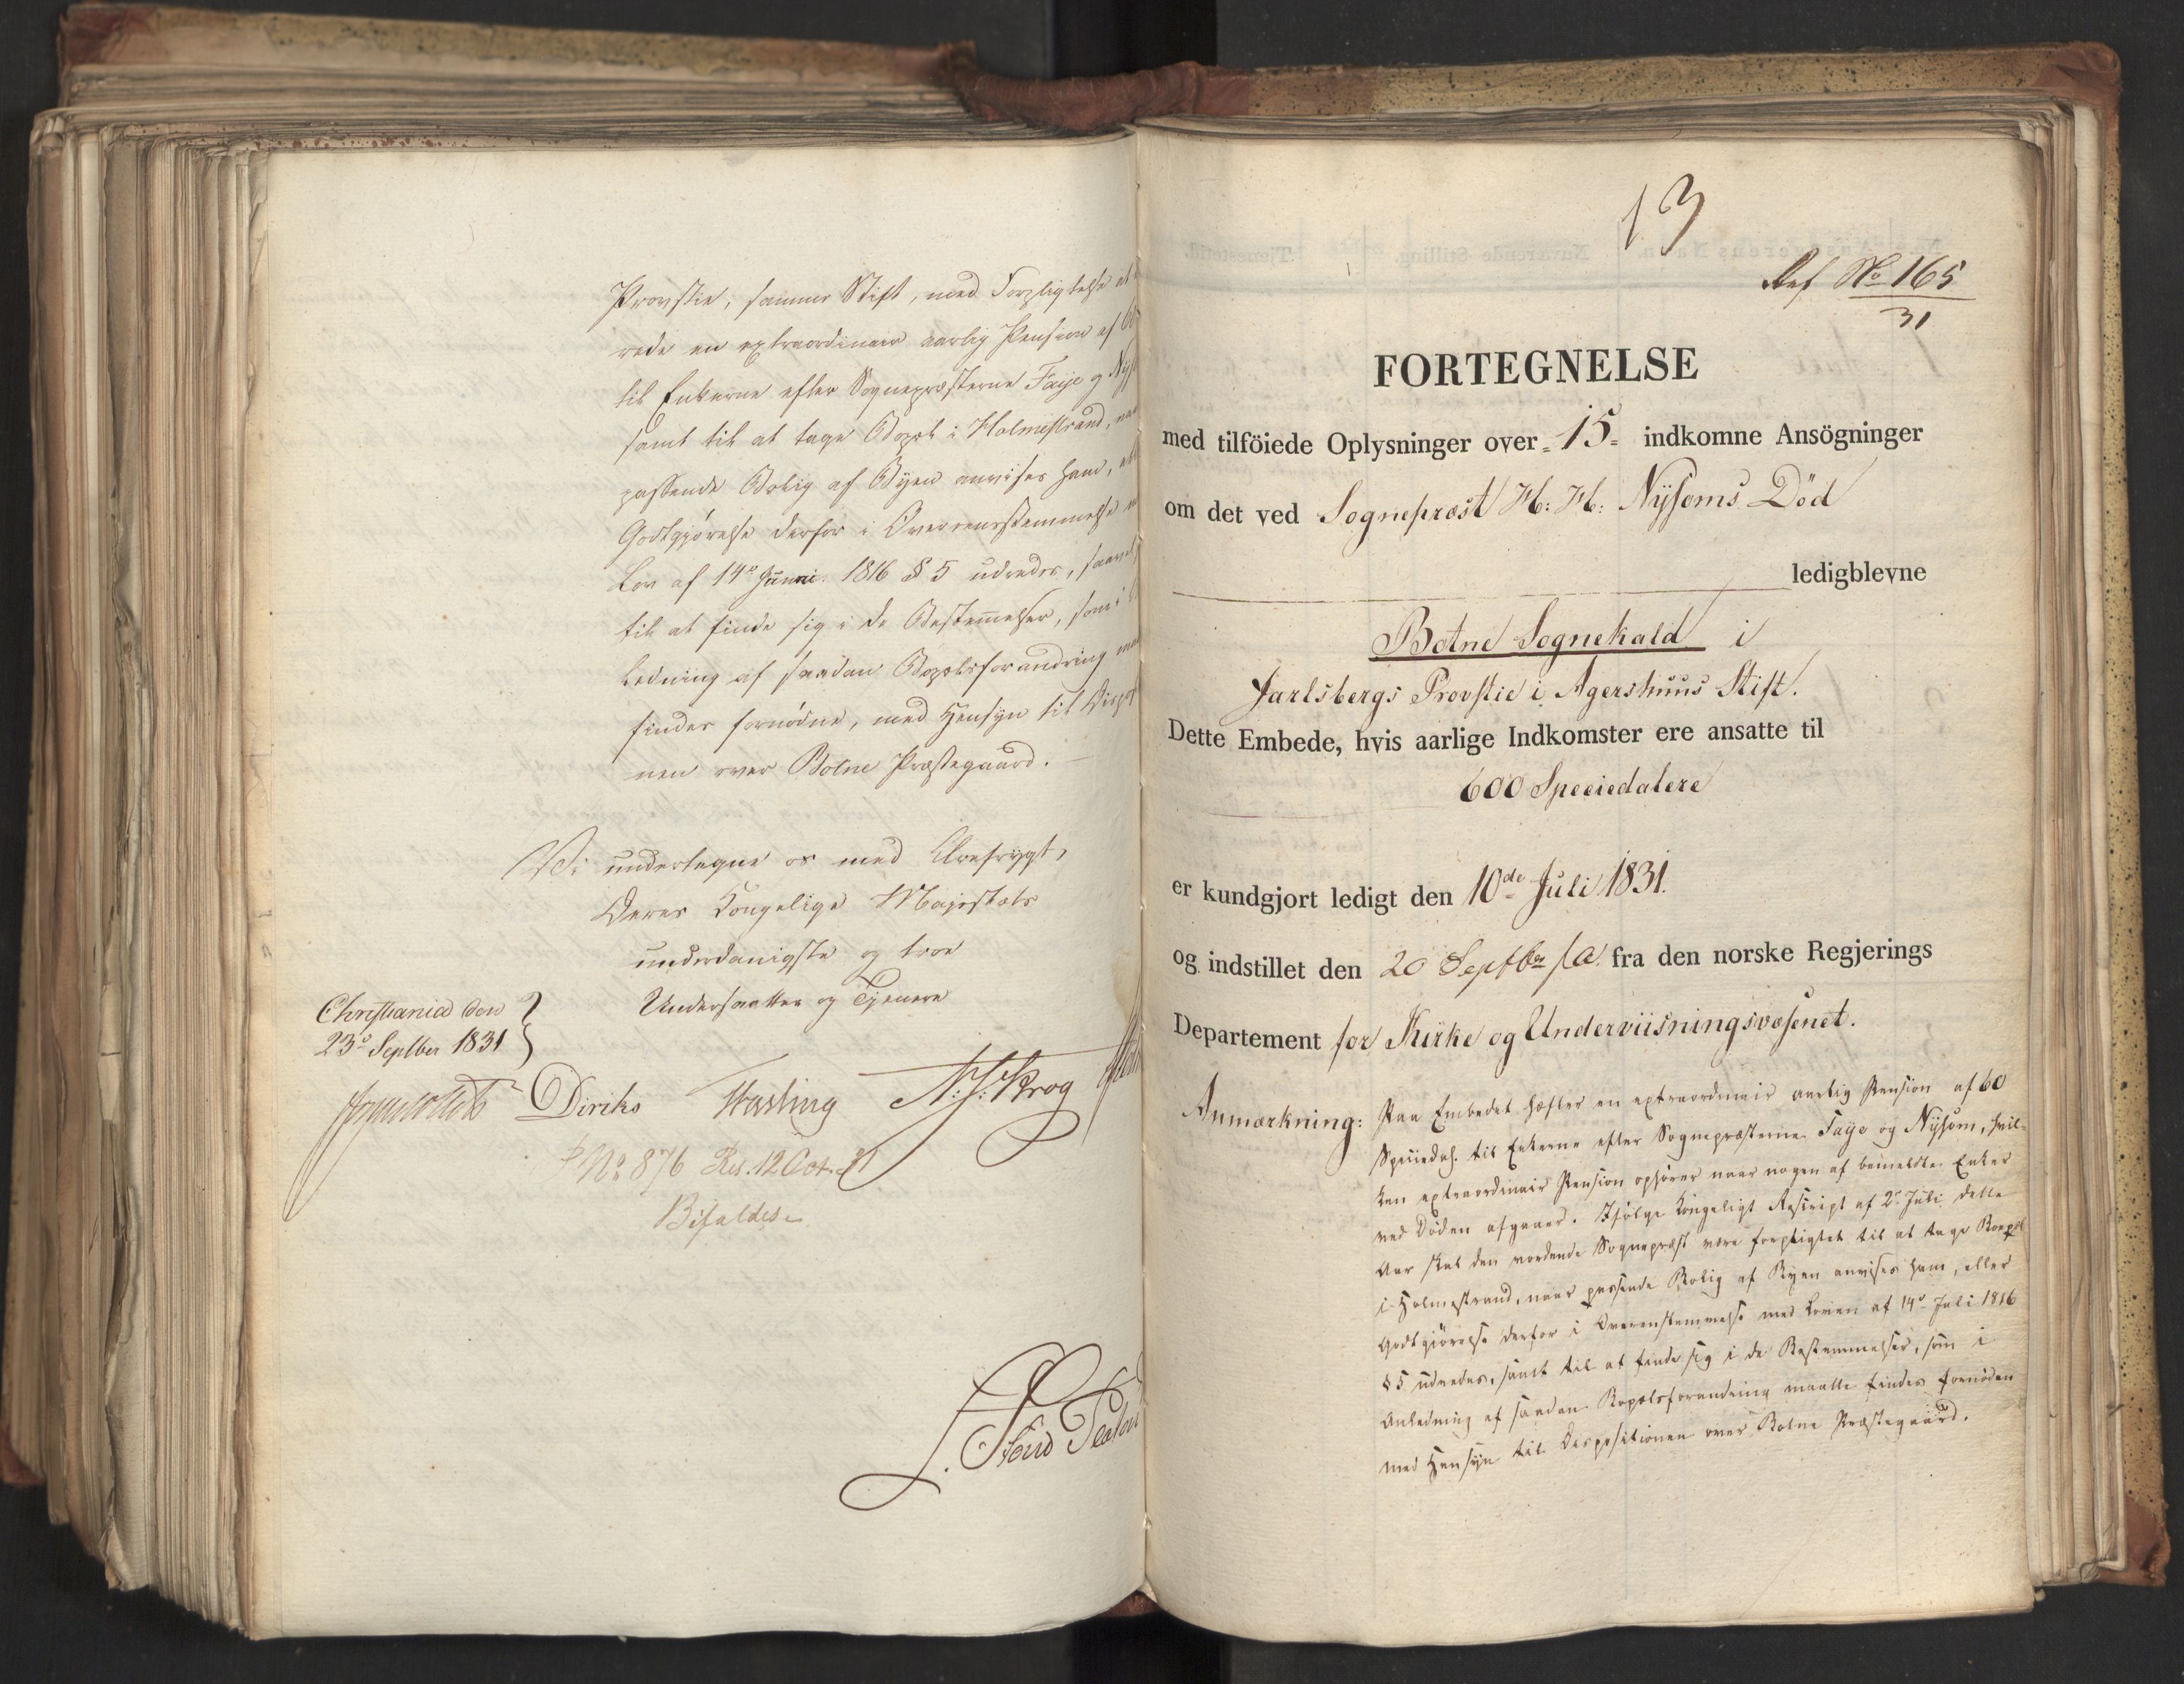 Provstie, samme Stift, med Forpligtelse at
rede en extraordinair aarlig Pension af 60
til Enkerne efter Sognepræsterne Faÿe og Nÿs
samt til at tage Bopæl i Holmestrand, naa
passende Bolig af Bÿen anvises ham, ell
Godtgjørelse derfor i Overensstemmelse
Lov af 14de Junni 1816 § 5 udredes, saavel
til at finde sig i de Bestem̅elser, som i
ledning af saadan Bopælsforandring maa
findes fornødne, med Hensÿn til Disp
nen over Botne Præstegaard. —
Vi undertegne os med Ærefrÿgt,
Deres Kongelige Majestæts
underdanigste og troe
Undersaatter og Tjenere
Christiania den
23de Septber 1831
Diriks N. J. Krog
No 876 Res. 12 Oct. 31
Bifaldes
13
Ref No 165
31
FORTEGNELSE
med tilföiede Oplysninger over = 15 = indkomne Ansögninger
om det ved Sognepræst H: H: Nÿsoms Död
ledigblevne
Botne Sognekald i
Jarlsbergs Provstie i Agershuus Stift.
Dette Embede, hvis aarlige Indkomster ere ansatte til
600 Speciedalere
er kundgjort ledigt den 10de Juli 1831.
og indstillet den 20 Septbr s. A. fra den norske Regjerings
Departement for Kirke og Underviisningsvæsenet.
Anmærkning: Paa Embedet hæfter en extraordinair aarlig Pension af 60
Speciedlr. til Enkerne efter Sognepræsterne Faÿe og Nÿsom, hvil-
ken extraordinair Pension ophører naar nogen af bemeldte Enker
ved Døden afgaaer. Ifølge Kongeligt Rescript af 2de Juli dette
Aar skal den vordende Sognepræst være forpligtet til at tage Bopæl
i Holmestrand, naar passende Bolig af Bÿen anvises ham, eller
Godtgiörelse derfor i Overenstemmelse med Loven af 14de Juli 1816
§ 5 udredes, samt til at finde sig i de Bestemmelser, som i
Anledning af saadan Bopælsforandring maatte findes fornöden
med Hensÿn til Dispositionen over Botne Præstegaard.